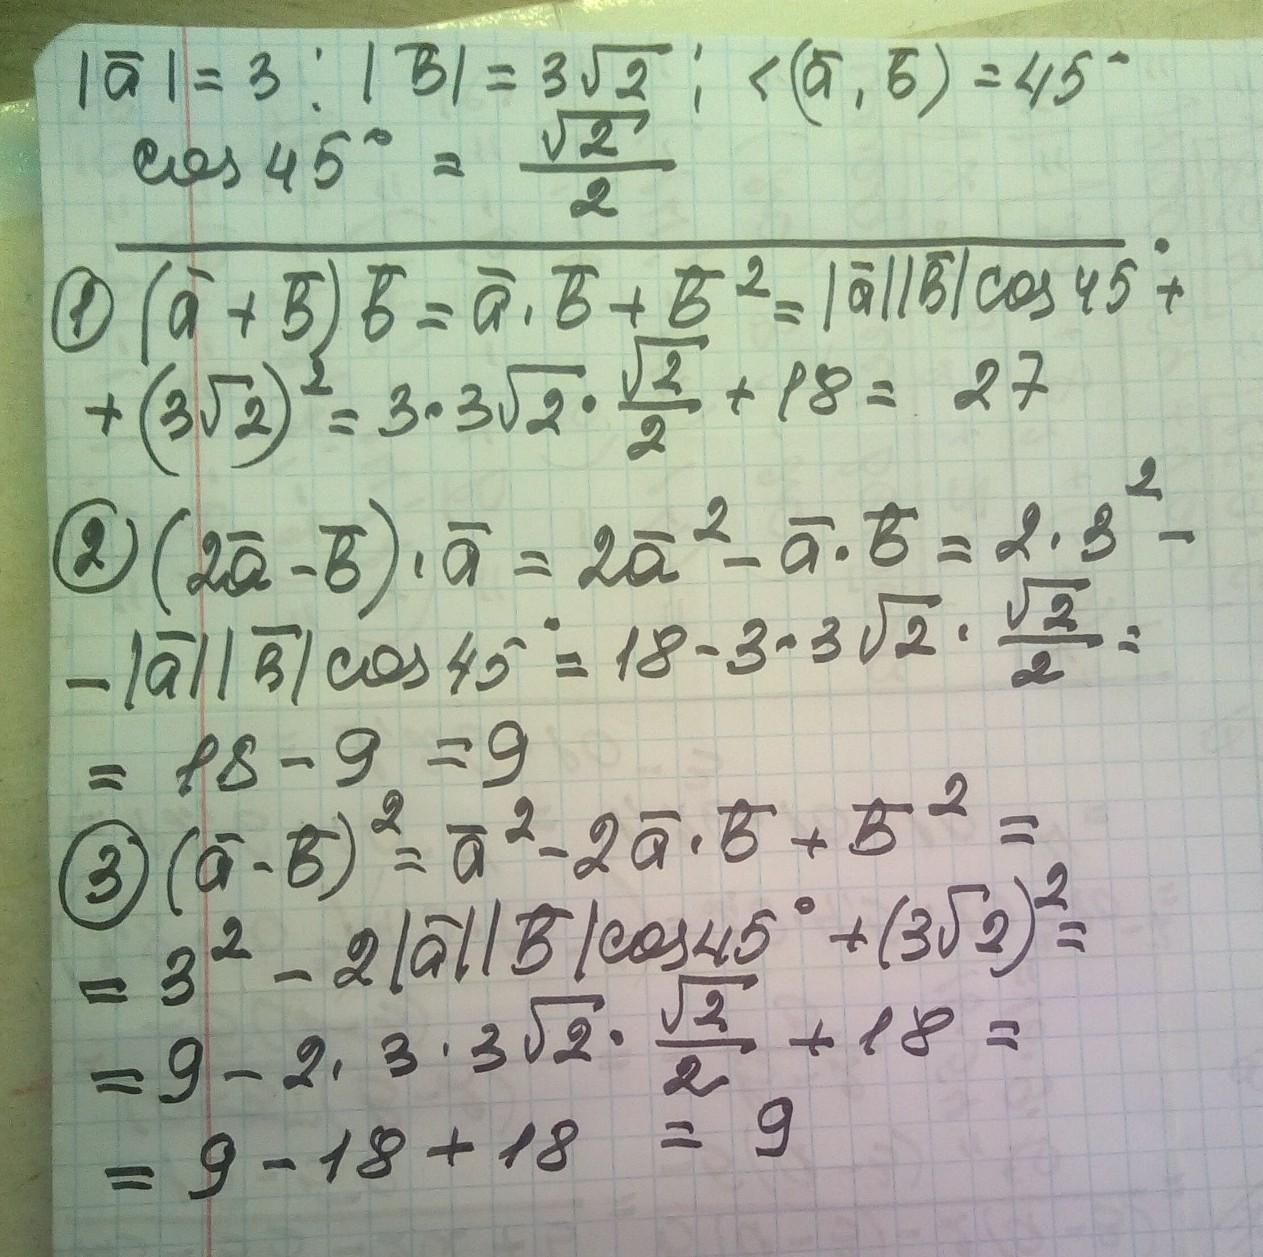 |a̅| = 3 ; |b̅| = 3√2 ; <(a̅, b̅) = 45°
cos 45° = √2/2
① (a̅ + b̅) b̅ = a̅ · b̅ + b̅² = |a̅||b̅| cos 45° +
+ (3√2)² = 3 · 3√2 · √2/2 + 18 = 27
② (2a̅ - b̅) · a̅ = 2a̅² - a̅ · b̅ = 2 · 3² -
- |a̅||b̅| cos 45° = 18 - 3 · 3√2 · √2/2 =
= 18 - 9 = 9
③ (a̅ - b̅)² = a̅² - 2a̅ · b̅ + b̅² =
= 3² - 2|a̅||b̅| cos 45° + (3√2)² =
= 9 - 2 · 3 · 3√2 · √2/2 + 18 =
= 9 - 18 + 18 = 9